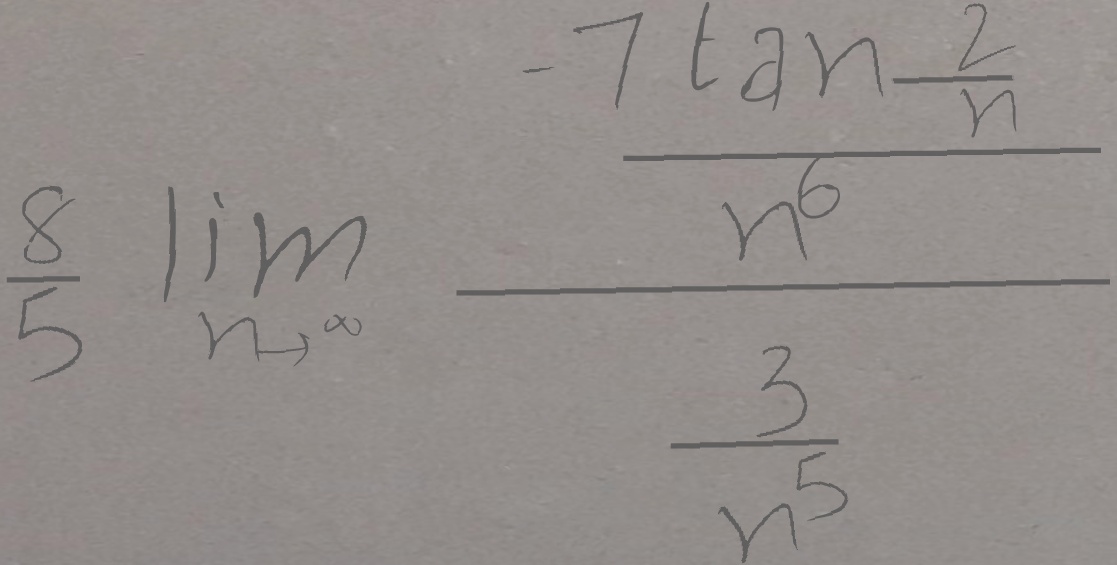 \frac{8}{5} \lim_{n \to \infty} \frac{\frac{-7 \tan \frac{2}{n}}{n^6}}{\frac{3}{n^5}}